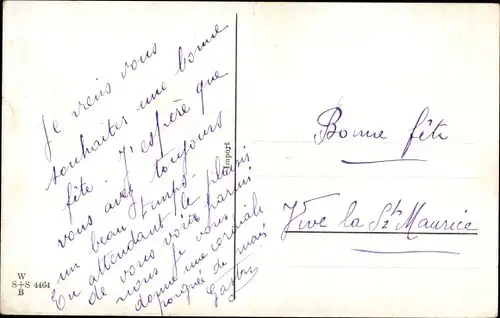 Je viens vous
souhaiter une bonne
fête. J'espère que
vous avez toujours
un beau temps.
En attendant le plaisir
de vous voir parmi
nous je vous
donne une cordiale
poignée de main
Gaston
Import
W
S+S 4464
B
Bonne fête
Vive la St Maurice